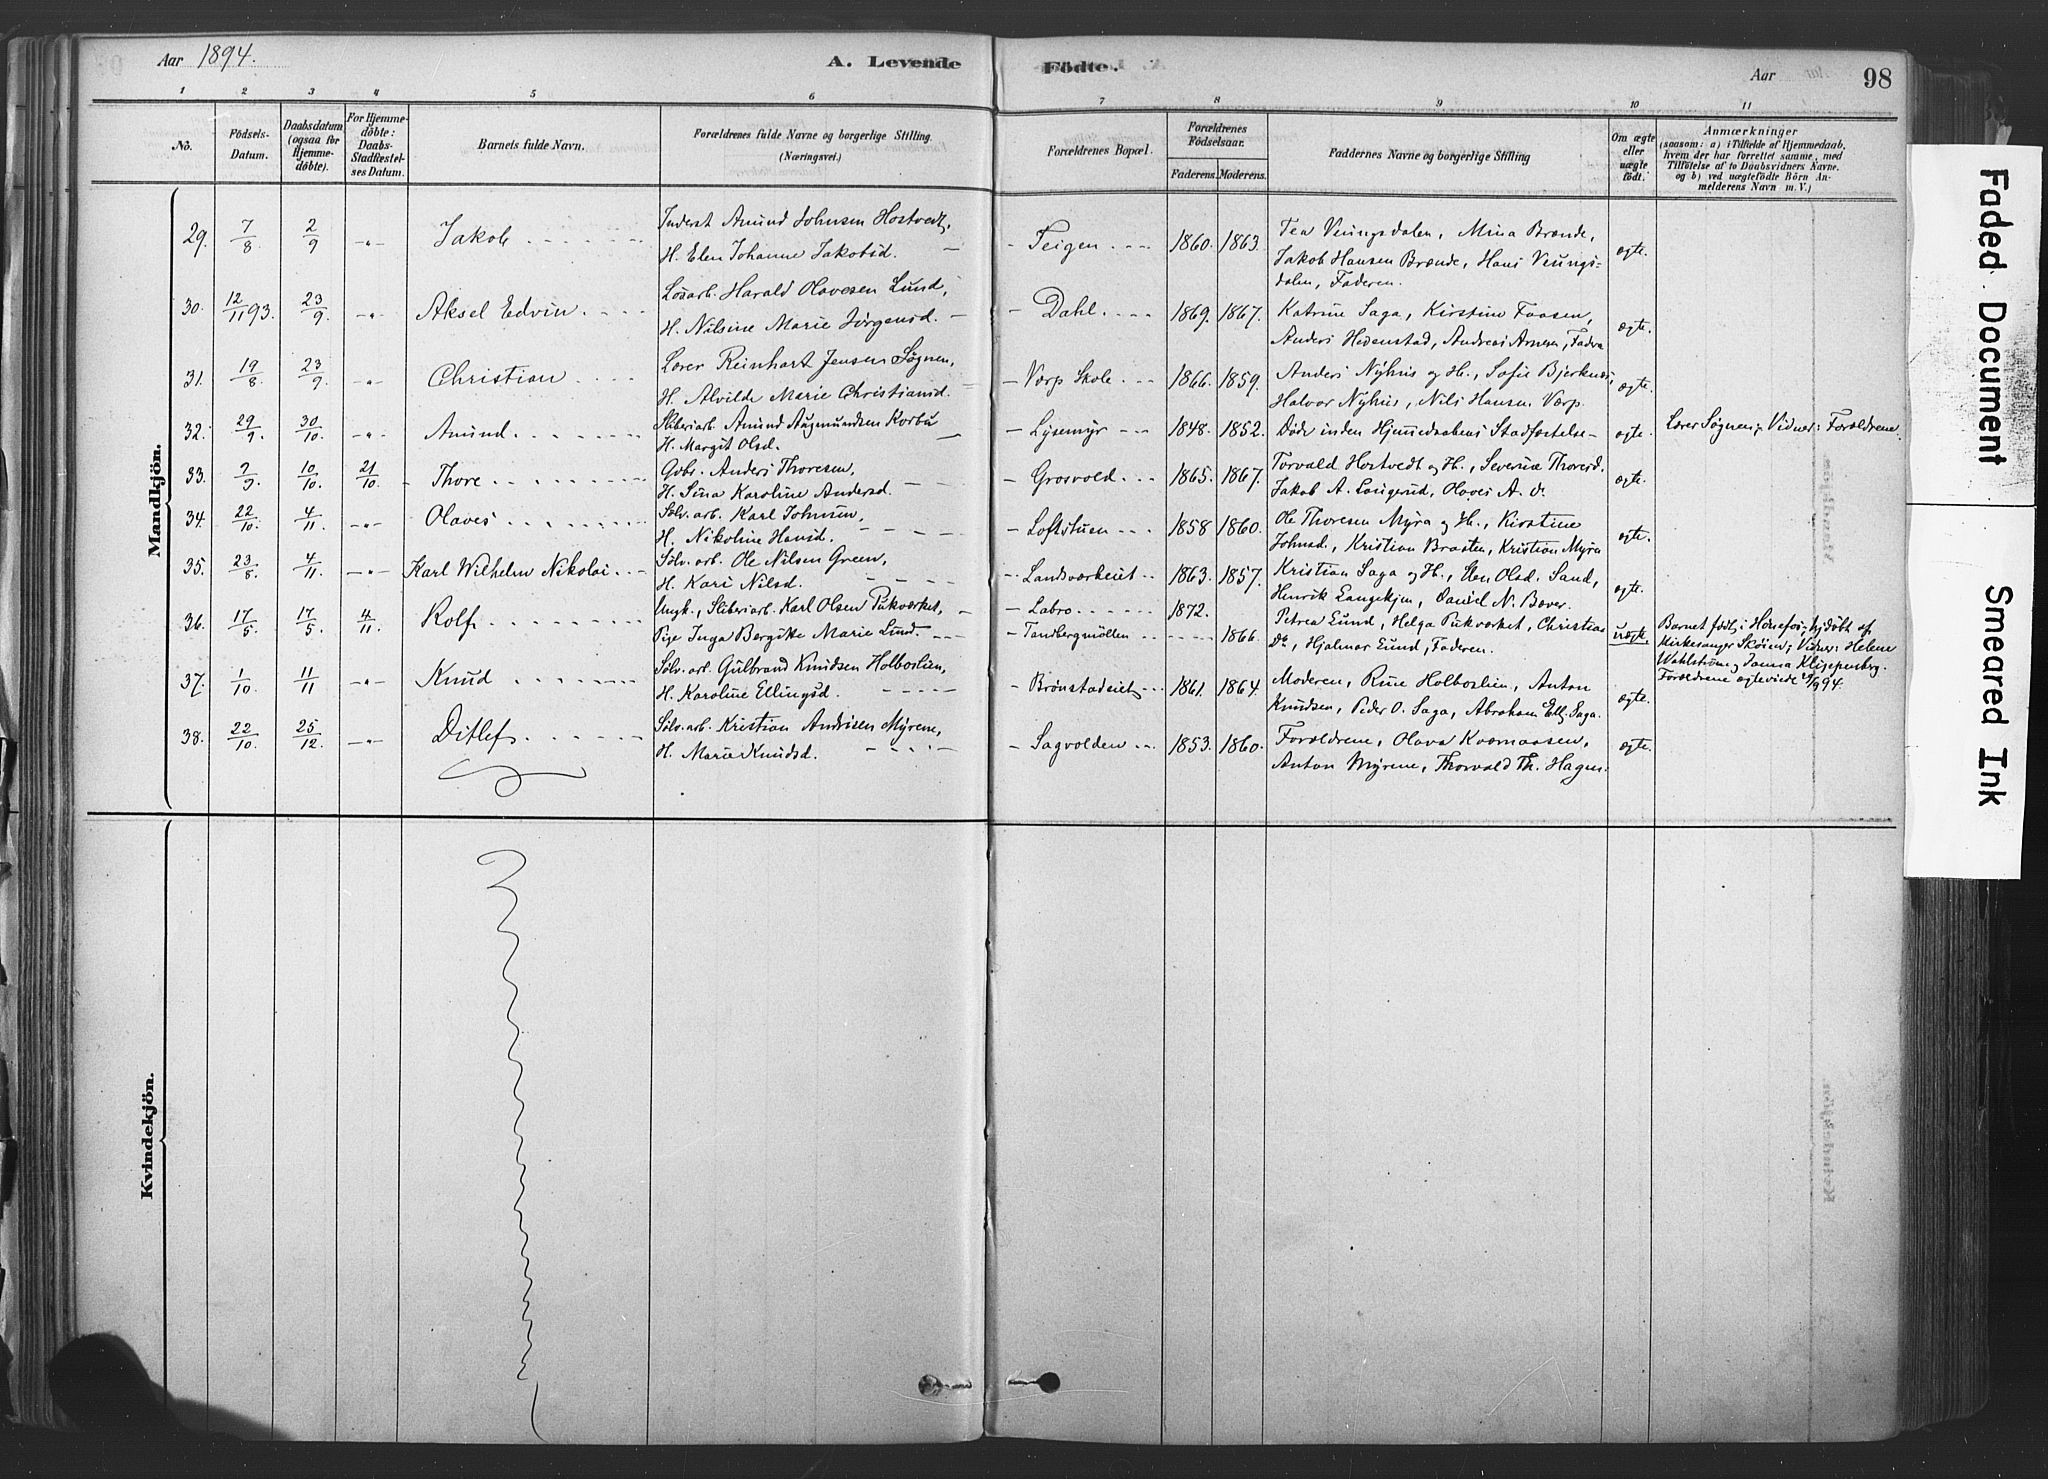 Aar 1894.
A. Levende
Födte.
Aar
98
1 2 3 4 5 6 7 8 9 10 11
No.
Födsels-
Datum.
Daabsdatum
(ogsaa for
Hjemme-
döbte).
For Hjemme-
döbte:
Daabs-
Stadfæstel-
ses Datum.
Barnets fulde Navn.
Forældrenes fulde Navne og borgerlige Stilling.
(Næringsvei.)
Forældrenes Bopæl.
Forældrenes
Födselsaar.
Faderens. Moderens.
Faddernes Navne og borgerlige Stilling
Om ægte
eller
uægte
födt.
Anmærkninger
(saasom: a) i Tilfælde af Hjemmedaab,
hvem der har forrettet samme, med
Tilföielse af to Daabsvidners Navne.
og b) ved uægtefödte Börn An-
melderens Navn m. V.)
Mandkjön.
29. 7/8 2/9 -"- Jakob
Inderst Amund Johnsen Hostvedt,
H. Elen Johanne Jakobsd.
Teigen 1860. 1863.
Tea Veungsdalen, Mina Brænde,
Jakob Hansen Brænde, Hans Veungs-
dalen, Faderen.
ægte.
30. 12/11 93. 23/9 -"- Aksel Edvin
Løsarb. Harald Olavesen Lund,
H. Nilsine Marie Jørgensd.
Dahl 1869. 1867.
Katrine Saga, Kirstine Faasen,
Anders Hedenstad, Andreas Arnesen, Fadern
ægte.
31. 19/8 23/9 -"- Christian
Lærer Reinhart Jensen Søgnen,
H. Alvilde Marie Christiansd.
Værp Skole 1866. 1859.
Anders Nyhus og H., Sofie Bjerknes,
Halvor Nyhus, Nils Hansen Værp.
ægte.
32. 29/9. 30/10. -"- Amund
Sliberiarb. Amund Augmundsen Korbu
H. Margit Olsd.
Lysemyr 1848. 1852.
Døde inden Hjemmedaabens Stadfæstelse
ægte.
Lærer Søgnen; Vidner: Forældrene.
33. 7/9. 10/10. 21/10 Thore
Gbr. Anders Thoresen,
H. Sina Karoline Andersd.
Grosvold 1865. 1867.
Torvald Hostvedt og H., Severine Thoresd.
Jakob A. Langerud, Olaves A. do.
ægte.
34. 22/10. 4/11. -"- Olaves
Sølv. arb. Karl Johnsen,
H. Nikoline Hansd.
Loftstuen 1858 1860.
Ole Thoresen Myra og H., Kirstine
Johnsd., Kristian Braaten, Kristian Myra
ægte.
35. 23/8. 4/11. -"- Karl Wilhelm Nikolai
Sølv. arb. Ole Nilsen Green,
H. Kari Nilsd.
Landsværkeiet 1863. 1857.
Kristian Saga og H., Elen Olsd. Sand,
Henrik Langekjen, Daniel N. Bæver.
ægte.
36. 17/5. 17/5. 4/11. Rolf
Ungk., Sliberiarb. Karl Olsen Pukværket,
Pige Inga Bergitte Marie Lund.
Labro 1872.
Tandbergmöllen 1866.
Petrea Lund, Helga Pukværket, Christian
Do, Hjalmar Lund, Faderen.
uægte
Barnet født i Hønefos, hjdøbt af
Kirkesanger Skøien; Vidner: Helene
Wahlstrøm og Janna Klippenberg.
Forældrene ægteviede
37. 1/10. 11/11 -"- Knud
Sølv. arb. Gulbrand Knudsen Holboslien,
H. Karoline Ellingsd.
Brønstadeiet 1861. 1864.
Moderen, Rine Holboslien, Anton
Knudsen, Peder O. Saga, Abraham Ell. Saga.
ægte.
38. 22/10. 25/12. -"- Ditlef
Sølv. arb. Kristian Andersen Myrene,
H. Marie Knudsd.
Sagvolden 1853. 1860.
Forældrene, Olava Kværnaasen,
Anton Myrene, Thorvald Th. Hagen.
ægte.
Kvindekjön.
Faded Document
Smeared Ink